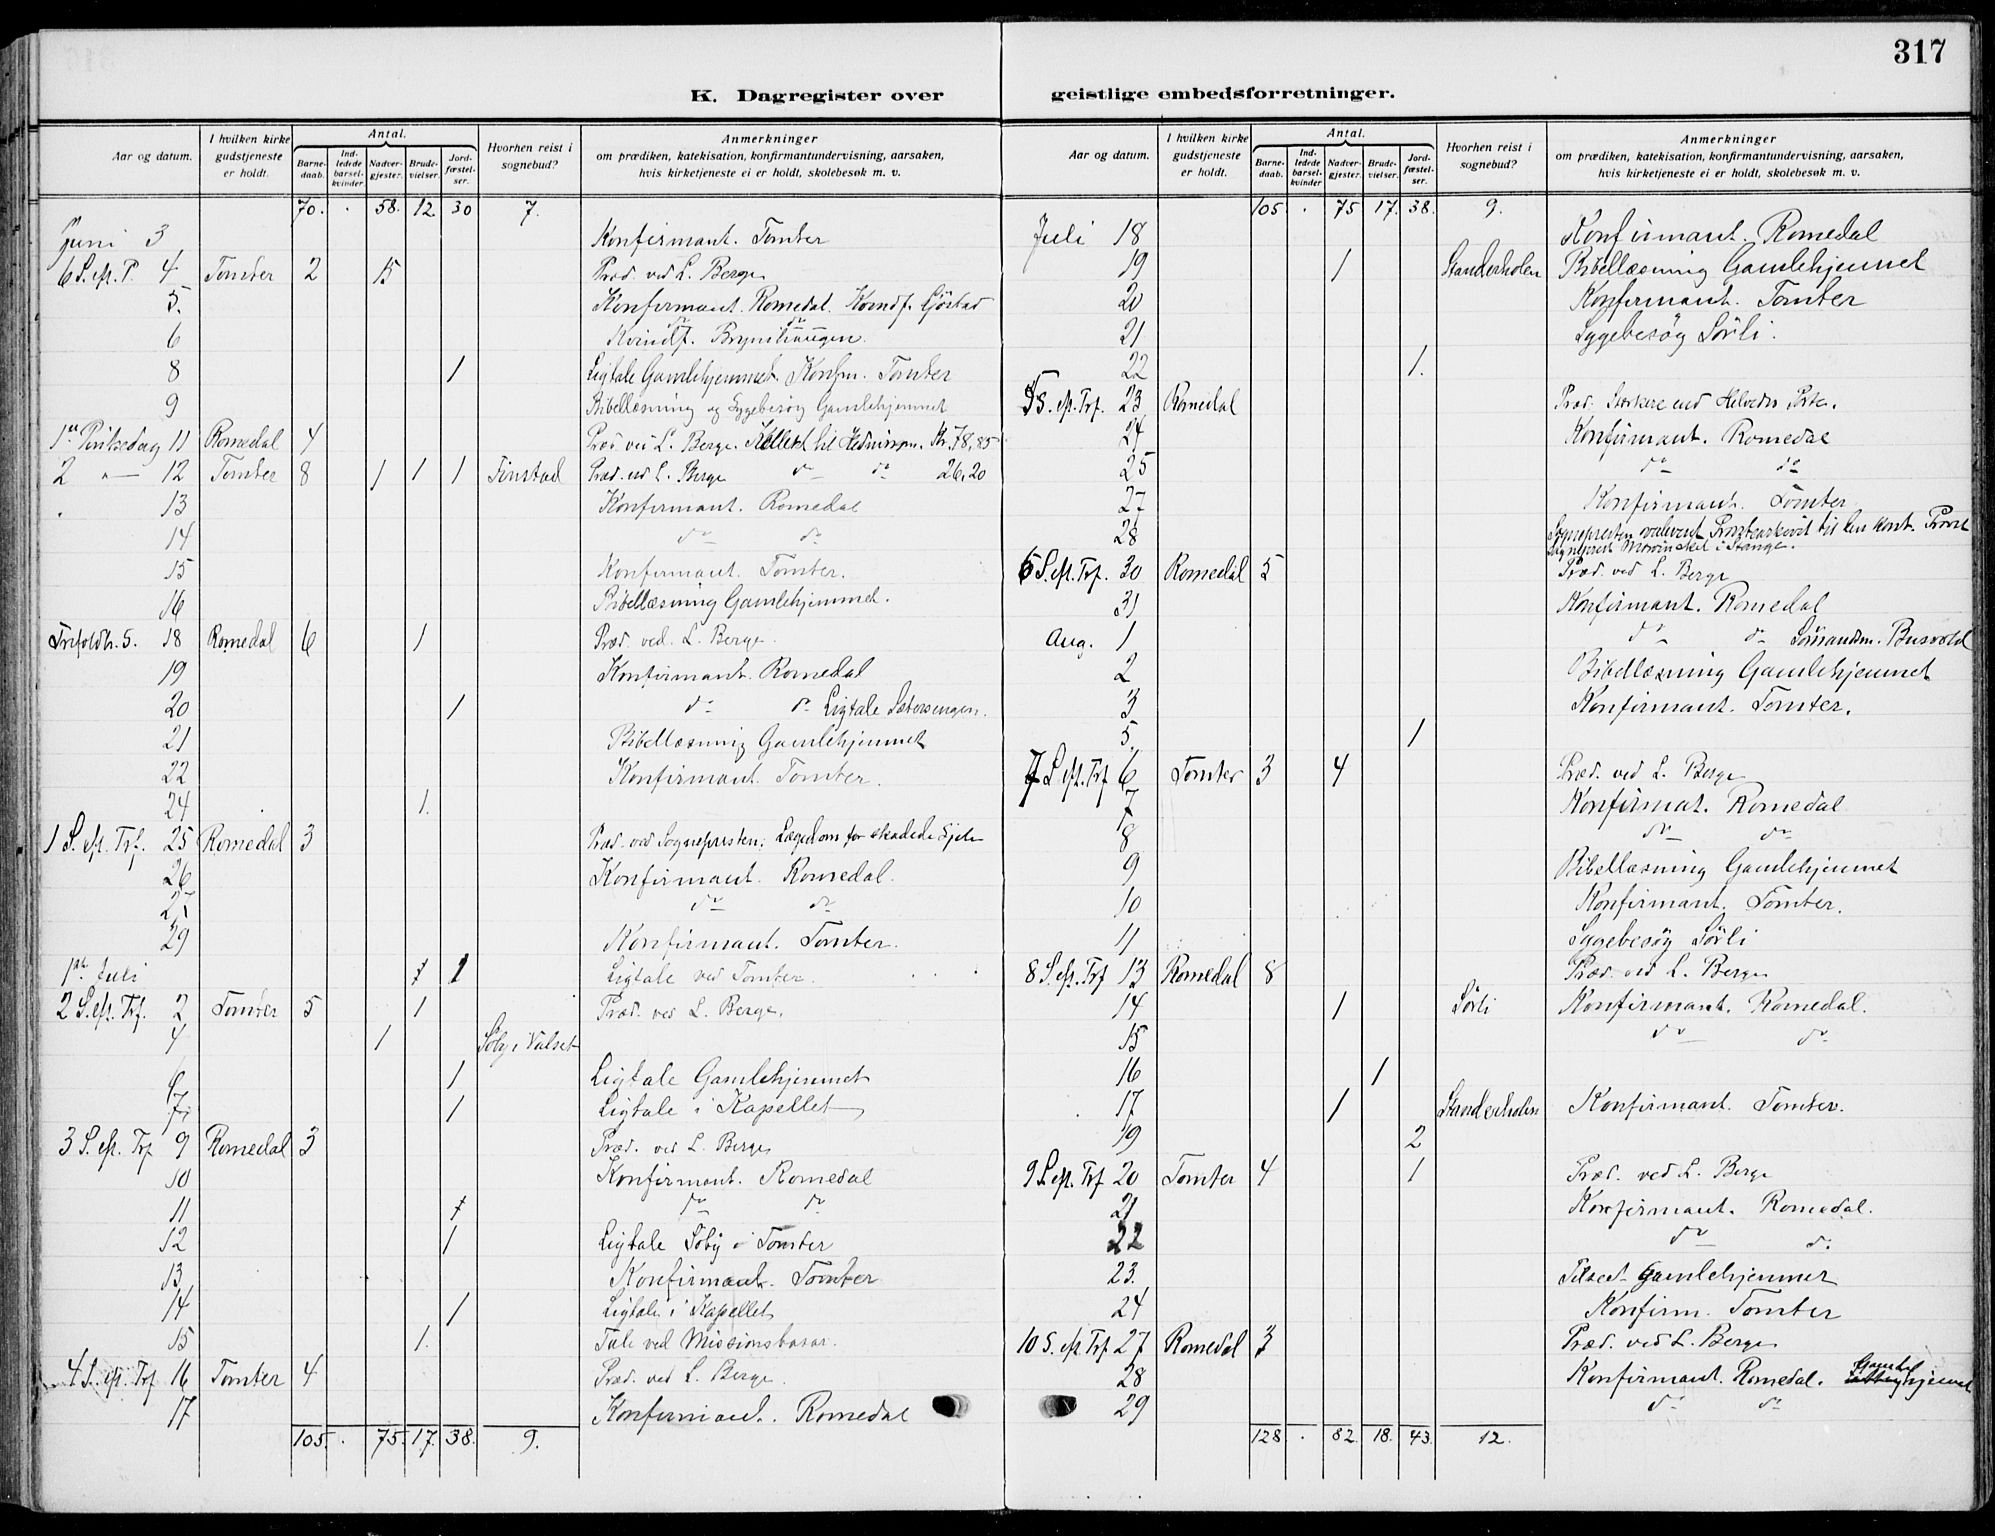 317
K. Dagregister over geistlige embedsforretninger.
Aar og datum. I hvilken kirke gudstjeneste er holdt. Antal. Barnedaab. Indledede barselkvinder Nadvergjester. Brudevielser. Jordfæstelser. Hvorhen reist i sognebud? Anmerkninger om prædiken, katekisation, konfirmantundervisning, aarsaken, hvis kirketjeneste ei er holdt, skolebesøk m. v.
70. . 58. 12. 30 7.
Juni 3 Konfirmant. Tomter
6 S. eft. P. 4 Tomter 2 15 Præd. ved L. Berge
5. Konfirmant. Romedal. Kvindf.
6 Kvindf.
8 1 Ligtale Gamlehjemmet. Konfm. Tomter
9 Bibellæsning og Sygebesøg Gamlehjemmet
1ste Pinksedag 11 Romedal 4 Præd. ved L. Berge. Kollekt til Kr. 78,85
2 " — 12 Tomter 8 1 1 1 Finstad Præd. ved L. Berge do do 26,20
13 Konfirmant. Romedal
14 do do
15 Konfirmant. Tomter.
16 Bibellæsning Gamlehjemmet.
Trefoldh. S. 18 Romedal 6 1 Præd. ved. L. Berge.
19 Konfirmant. Romedal
20 1 do do Ligtale Sætersengen.
21 Bibellæsning Gamlehjemmet
22 Konfirmant. Tomter.
24 1.
1 S. eft. Trf. 25 Romedal 3 Præd. ved Sognepresten: Lægedom for skadede Sjele
26 Konfirmant. Romedal.
27 do do
29 Konfirmant. Tomter.
1ste Juli 1 1 Ligtale ved Tomter.
2 S. eft. Trf. 2 Tomter 5 1 Præd. ved L. Berge.
4 1 Søby i Valset
6 1 Ligtale Gamlehjemmet
7 1 Ligtale i Kapellet
3 S. eft. Trf 9 Romedal 3 Præd. ved L. Berge
10 Konfirmant. Romedal
11 1 do do
12 1 Ligtale Søby i Tomter
13 Konfirmant. Tomter
14 1 Ligtale i Kapellet
15 1. Tale ved Missionsbasar.
4 S. eft. Trf 16 Tomter 4 Præd. ved L. Berge
17 Konfirmant. Romedal
105. . 75. 17. 38. 9.
Aar og datum. I hvilken kirke gudstjeneste er holdt. Antal. Barnedaab. Indledede barselkvinder Nadvergjester. Brudevielser. Jordfæstelser. Hvorhen reist i sognebud? Anmerkninger om prædiken, katekisation, konfirmantundervisning, aarsaken, hvis kirketjeneste ei er holdt, skolebesøk m. v.
105 . 75 17. 38. 9.
Juli 18 Konfirmant. Romedal
19 1 Standerholen Bibellæsning Gamlehjemmet
20 Konfirmant. Tomter
21 Sygebesøg Sørli.
22 1.
5 S. eft. Trf. 23 Romedal Præd. Stærkere end Helvedes Porte.
24 Konfirmant. Romedal
25 do do
27 Konfirmant. Tomter
28 Sognepresten overleveret til den konst. Provst
Sogneprest i Stange.
6 S. eft. Trf. 30 Romedal 5 Præd. ved L. Berge
31 Konfirmant. Romedal
Aug. 1 do do
2 Bibellæsning Gamlehjemmet
3 Konfirmant. Tomter.
5. 1
7 S. eft. Trf 6 Tomter 3 4 Præd. ved L. Berge
7 Konfirmat. Romedal
8 do do
9 Bibellæsning Gamlehjemmet
10 Konfirmant. Tomter.
11 Sygebesøg Sørli
8 S. eft. Trf 13 Romedal 8 Præd. ved L. Berge
14 1 Sørli Konfirmant. Romedal.
15 do do
16 1
17 1 Standerholen Konfirmant. Tomter.
19 2
9 S. eft. Trf 20 Tomter 4 1 Præd. ved L. Berge
21 Konfirmant. Romedal.
22 do do
23. Gamlehjemmet
24 Konfirm. Tomter
10 S. eft Trf 27 Romedal 3 Præd. ved L. Berge
28 Konfirmant. Romedal. Gamlehjemmet
29 do do
128 . 82. 18. 43. 12.